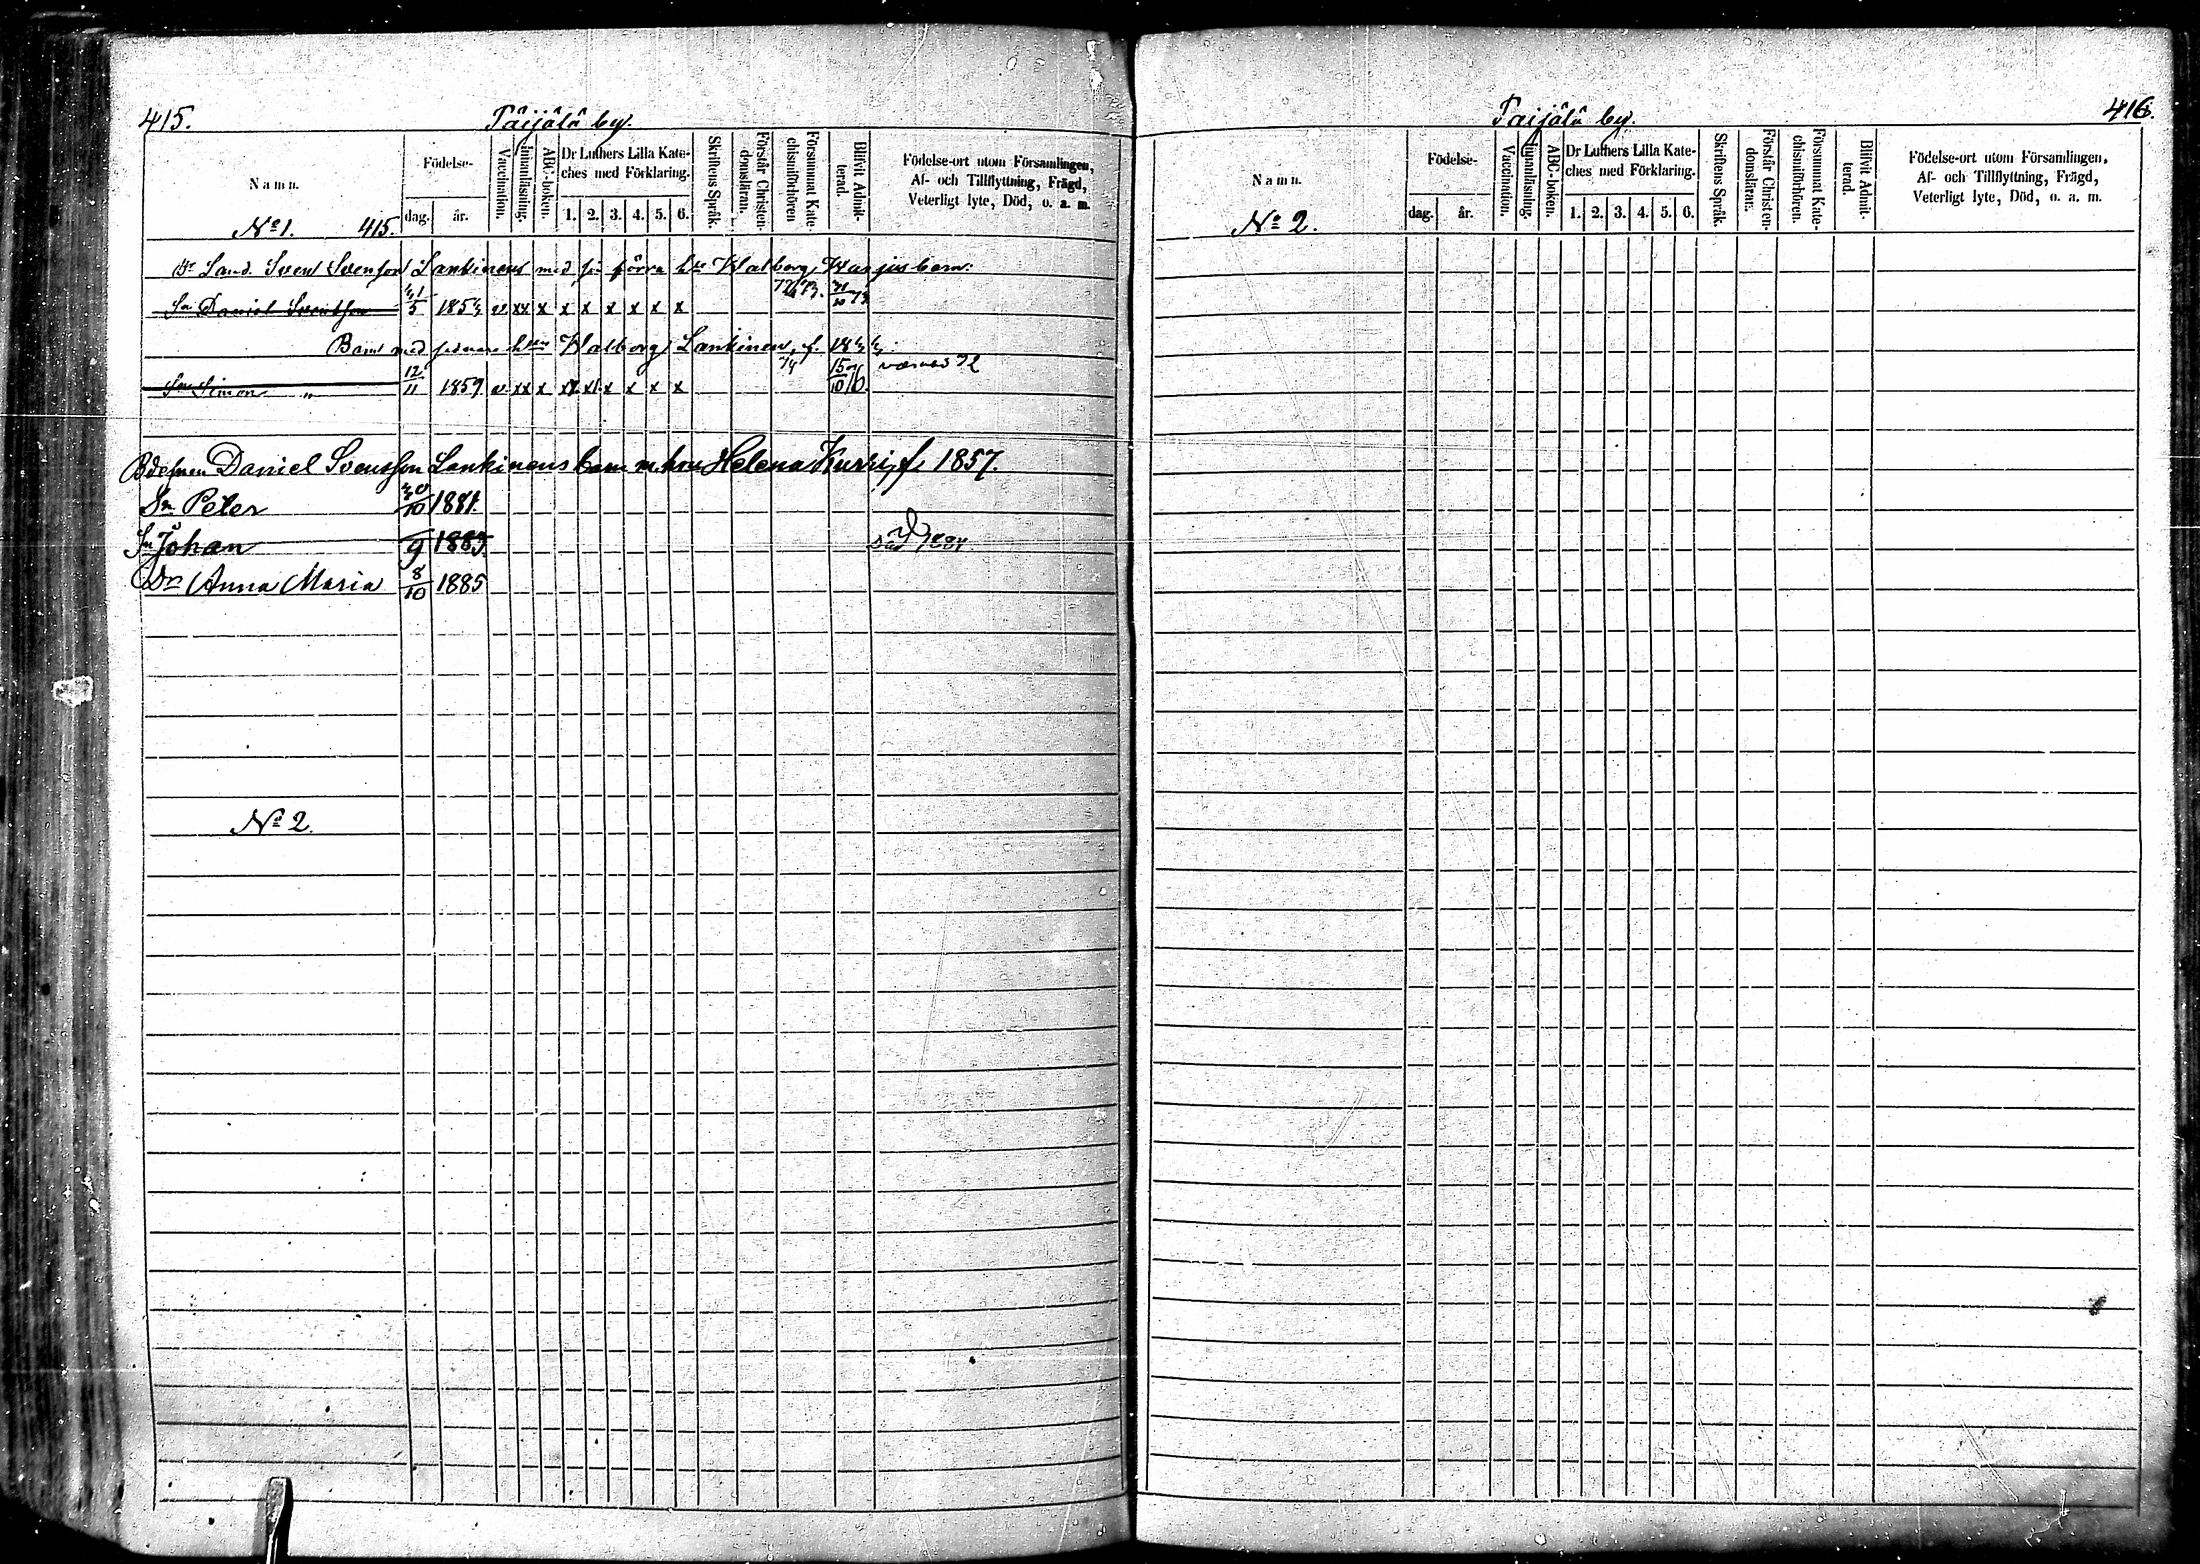 415.
Täijälä by.
Namn.
Födelse-
dag.
år.
Vaccination.
Innanläsning.
ABC-boken.
Dr Luthers Lilla Kate-
ches med Förklaring.
1. 2. 3. 4. 5. 6.
Skriftens Språk.
Förstår Christen-
domsläran.
Försummat Kate-
chismiförhören
Blifvit Admit-
terad.
Födelse-ort utom Församlingen,
Af- och Tillflyttning, Frägd,
Veterligt lyte, Död, o. a. m.
No 1. 415.
Sven Svensson Lankinens med förra Walborg barn.
Sn Daniel Svensson 1853 v. xx x x x x x x x
Barn med Walborg Lankinen, f.
Sn Simon " 12/11 1859 v. xx x x x x x 15/10 76.
Daniel Svensson Lankinens barn m. hru Helena Kurki, f. 1857.
Sn Peter 30/10 1881.
Sn Johan /9 1883 Död
Dr Anna Maria 8/10 1885
No 2.
416.
Taijälä by.
Namn.
Födelse-
dag.
år.
Vaccination.
Innanläsning.
ABC-boken.
Dr Luthers Lilla Kate-
ches med Förklaring.
1. 2. 3. 4. 5. 6.
Skriftens Språk.
Förstår Christen-
domsläran.
Försummat Kate-
chismiförhören.
Blifvit Admit-
terad.
Födelse-ort utom Församlingen,
Af- och Tillflyttning, Frägd,
Veterligt lyte, Död, o. a. m.
No 2.